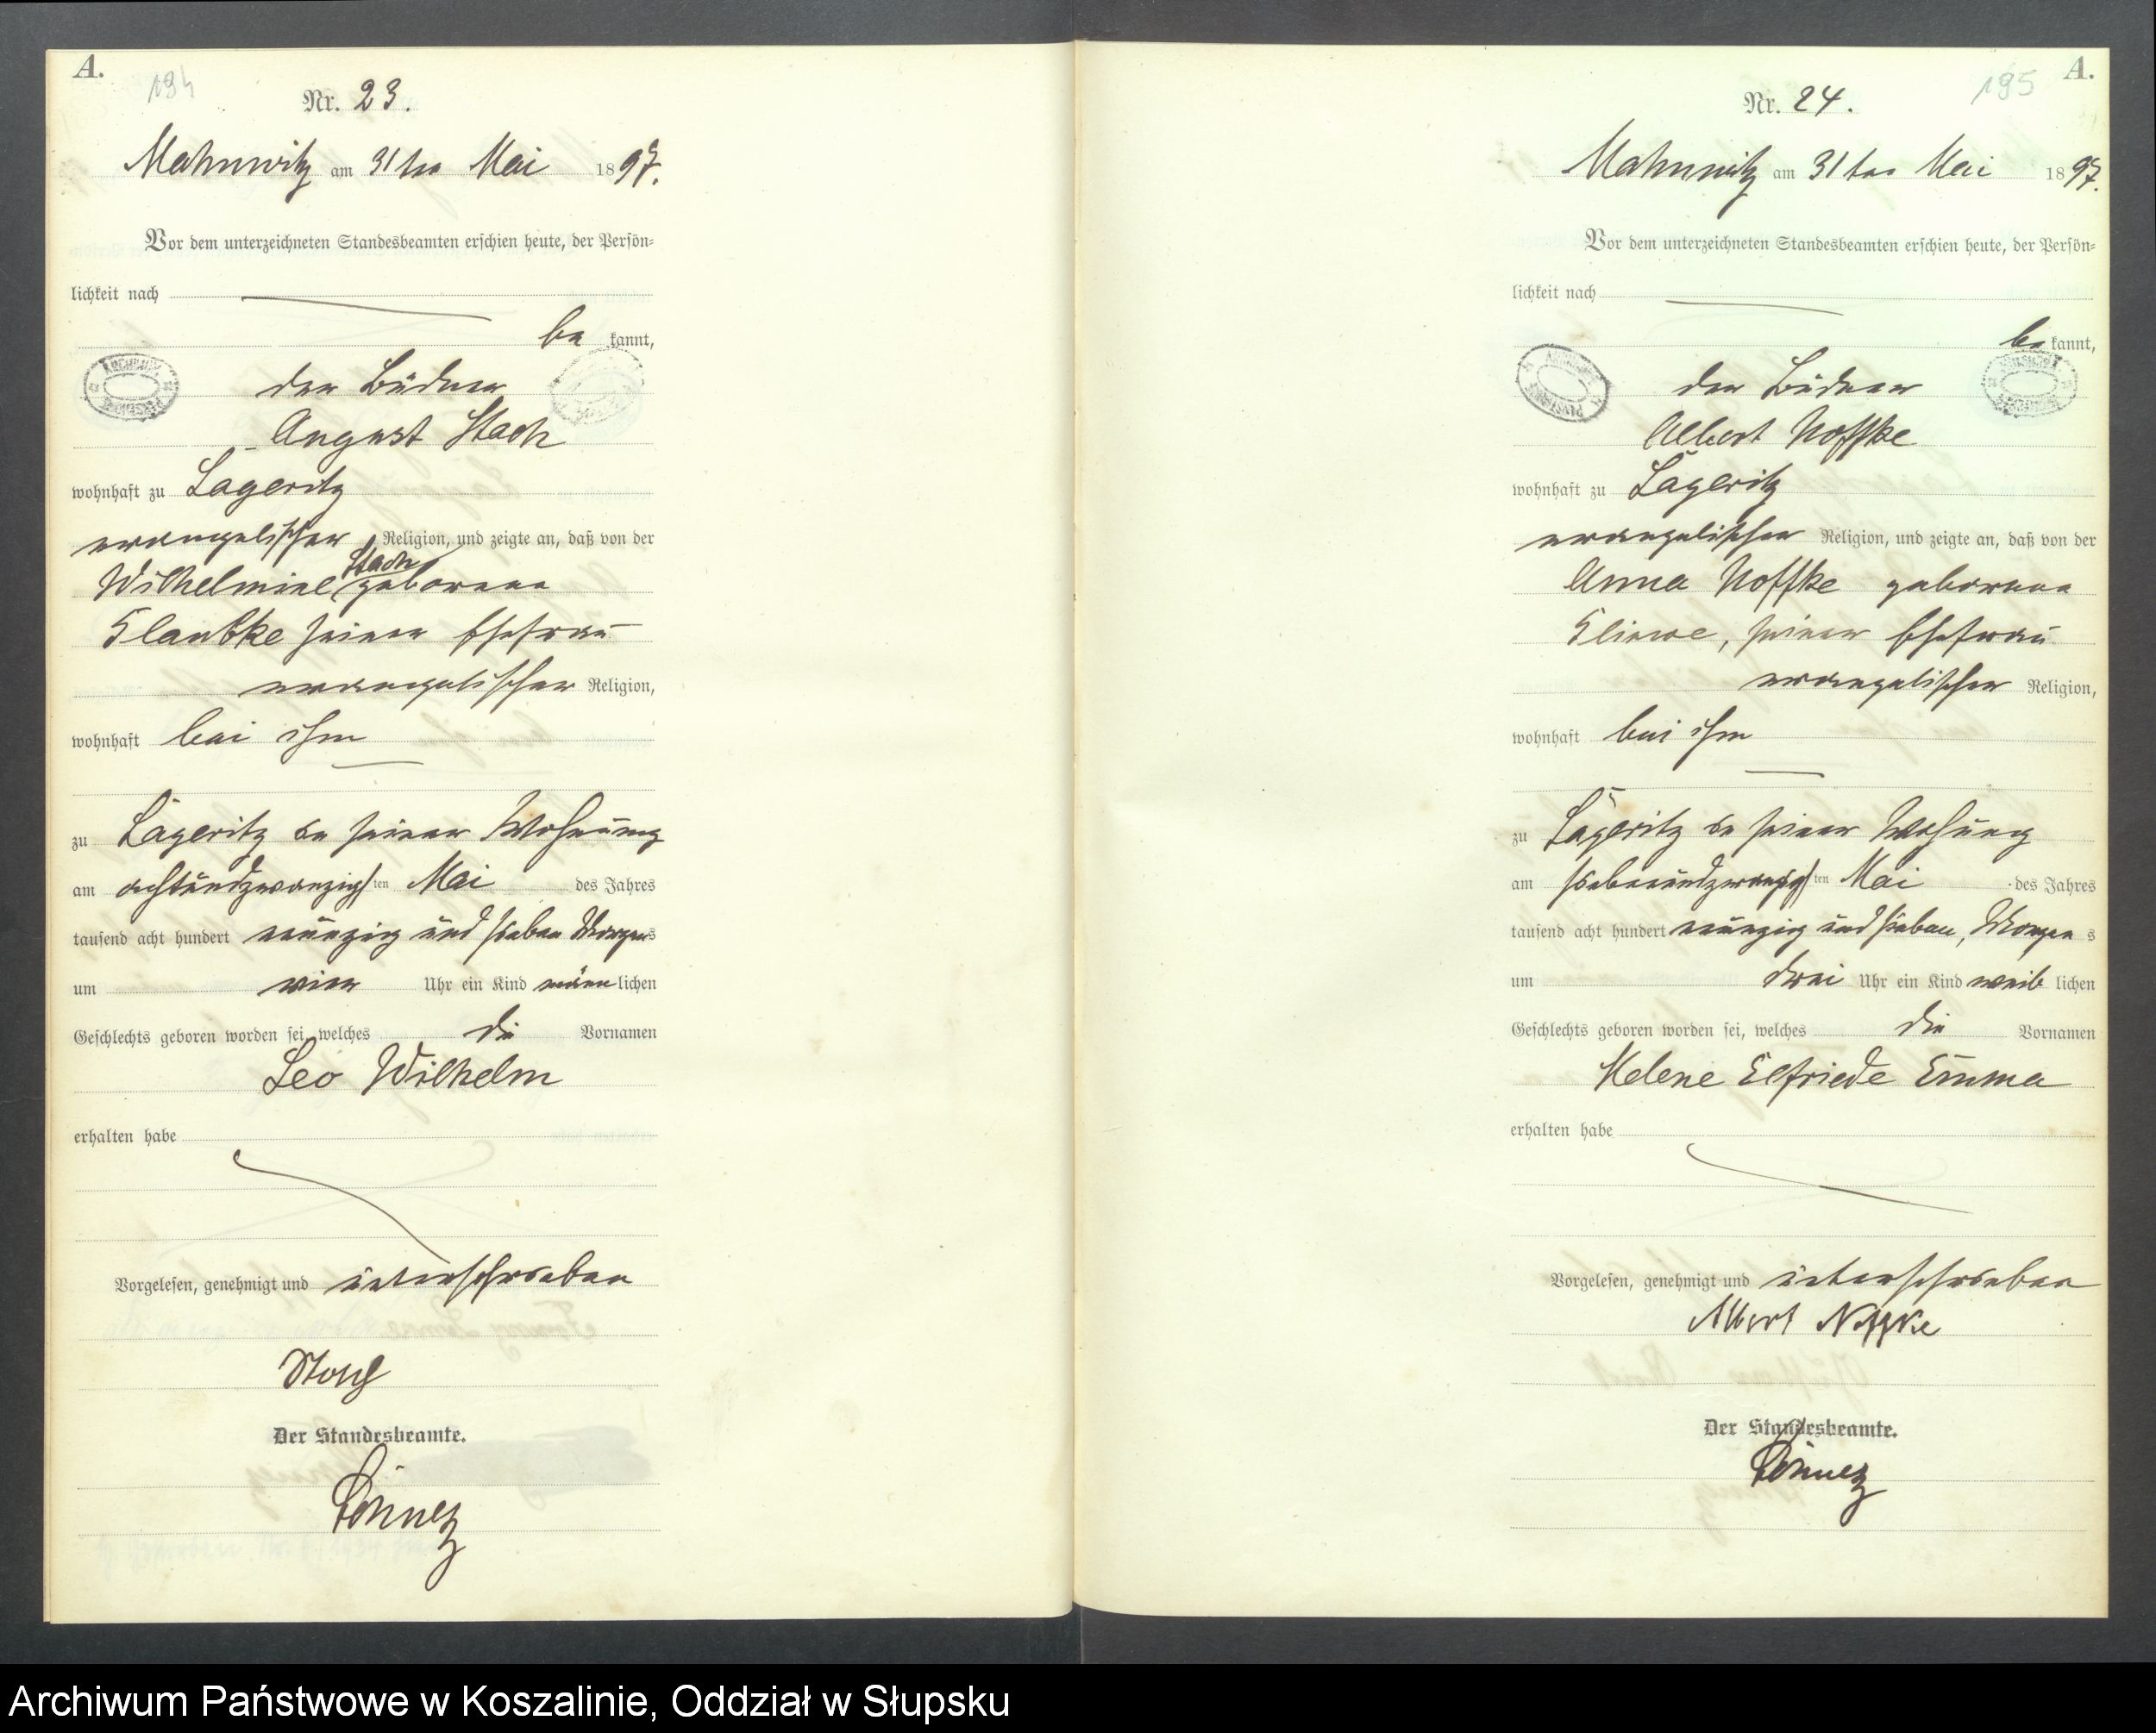 A.
194
Nr. 23.
Mahnwitz am 31ten Mai 1897.
Vor dem unterzeichneten Standesbeamten erschien heute, der Persön-
lichkeit nach
be kannt,
der Büdner
August Stach
wohnhaft zu Lägeritz
evangelischer Religion, und zeigte an, daß von der
Stach
Wilhelmine geborene
Klautke seiner Ehefrau
evangelischer Religion,
wohnhaft bei ihm
zu Lägeritz in seiner Wohnung
am achtundzwanzigsten Mai des Jahres
tausend acht hundert neunzig und sieben Morgens
um vier Uhr ein Kind männlichen
Geschlechts geboren worden sei, welches die Vornamen
Leo Wilhelm
erhalten habe
Vorgelesen, genehmigt und unterschrieben
Stach
Der Standesbeamte.
A.
195
Nr. 24.
Mahnwitz am 31ten Mai 1897.
Vor dem unterzeichneten Standesbeamten erschien heute, der Persön-
lichkeit nach
be kannt,
der Büdner
Albert Noffke
wohnhaft zu Lägeritz
evangelischer Religion, und zeigte an, daß von der
Anna Noffke geborene
Kliewe, seiner Ehefrau
evangelischer Religion,
wohnhaft bei ihm
zu Lägeritz in seiner Wohnung
am siebenundzwanzigsten Mai des Jahres
tausend acht hundert neunzig und sieben, Morgens
um drei Uhr ein Kind weiblichen
Geschlechts geboren worden sei, welches die Vornamen
Helene Elfriede Emma
erhalten habe
Vorgelesen, genehmigt und unterschrieben
Albert Noffke
Der Standesbeamte.
Archiwum Państwowe w Koszalinie, Oddział w Słupsku